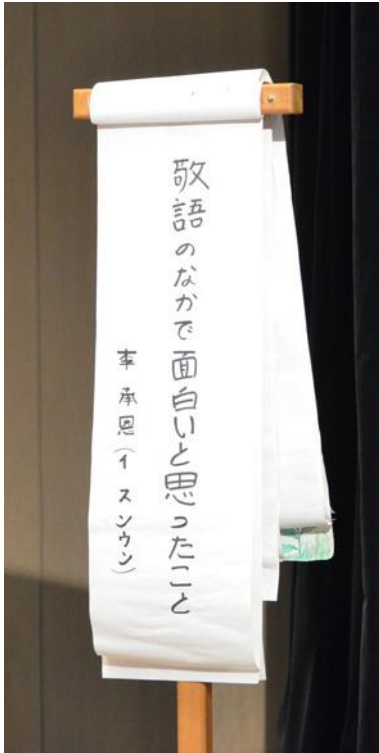 敬語のなかで面白いと思ったこと
李承恩(イ スンウン)